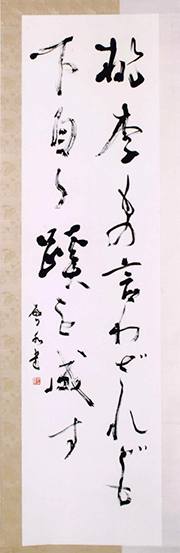 桃李もの言わざれども
下自ら蹊を成す